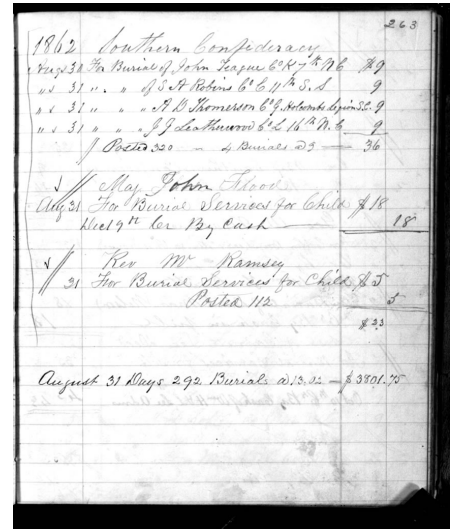 263
1862 Southern Confederacy
Augs 30 For Burial of John Teague Co K 7th N C $ 9
" s 31 " " " of S A Robins Co C 11th S. S 9
" s 31 " " " A D Thomerson Co G. Holcombs Legion S.C. 9
" s 31 " " " J J Leatherwood Co L 16th N. C 9
Posted 320 4 Burials @ 9 — 36
Maj John Flood
Aug 31 For Burial Services for Child $ 18
Dec 19th Cr By Cash — 18
Rev Mr Ramsey
31 For Burial Services for Child $ 5
Posted 112 5
$ 23
August 31 Days 292 Burials @ 13.02 — $3801.75